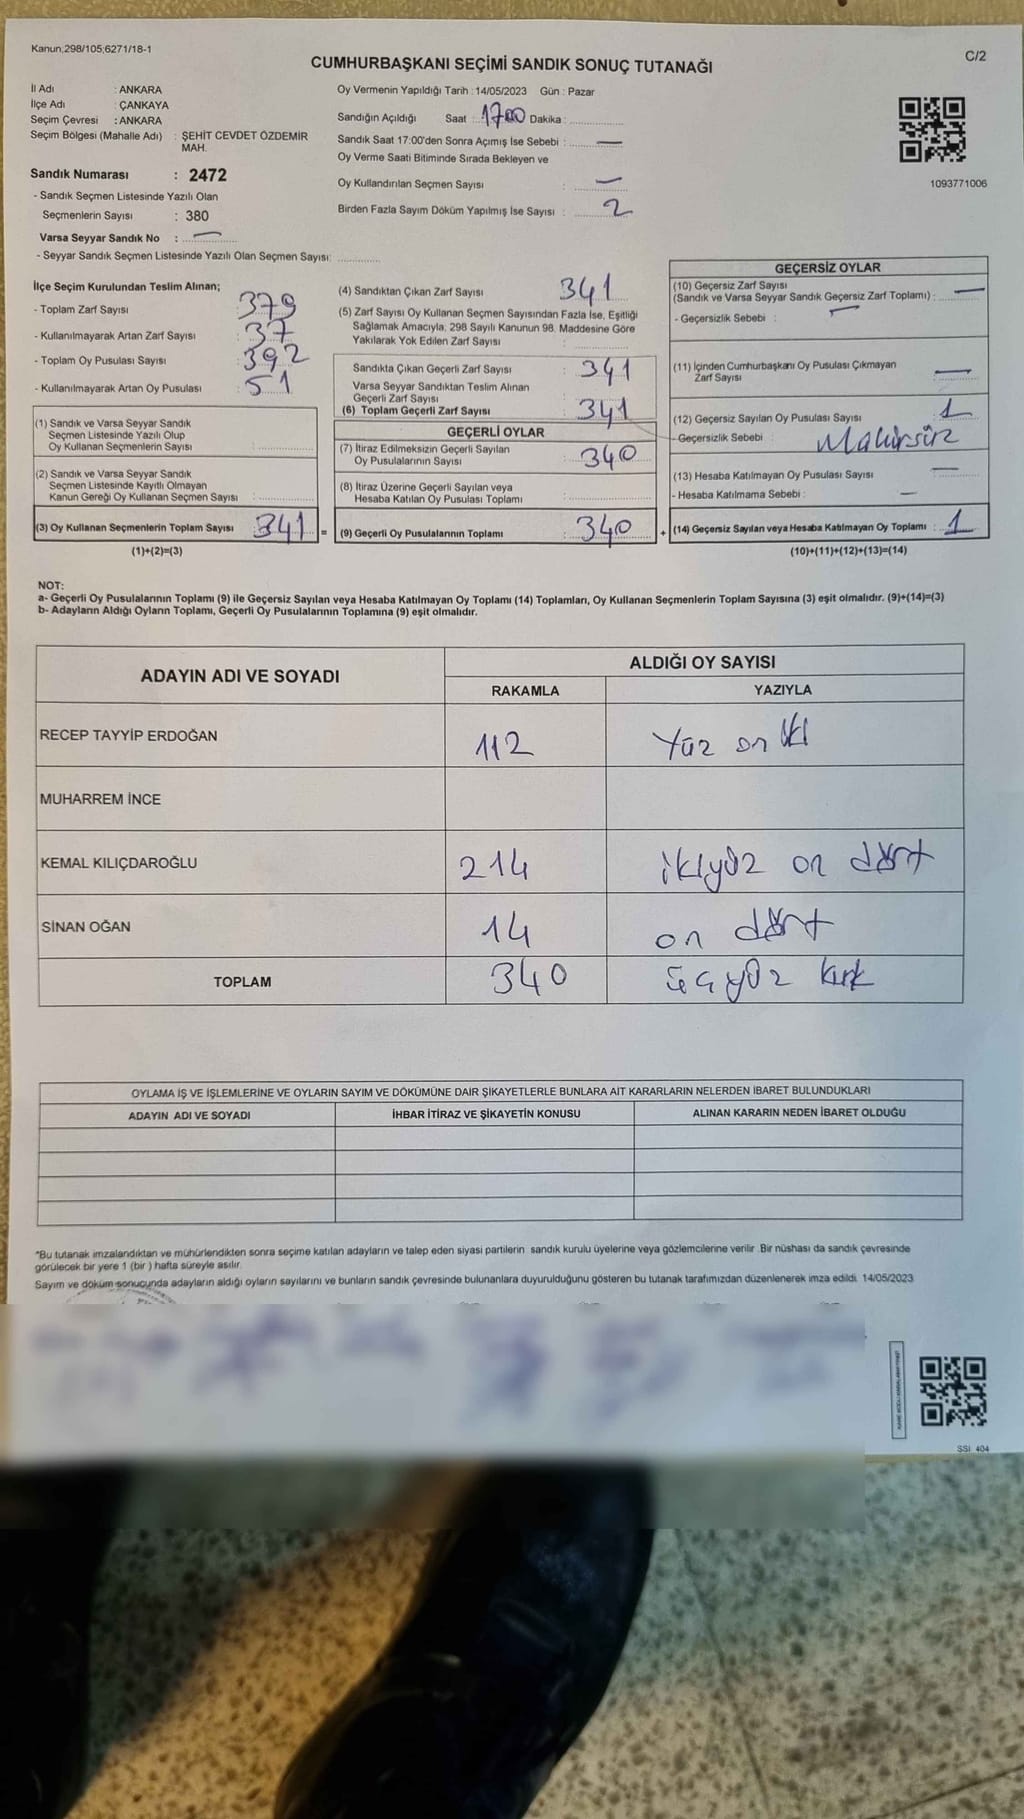 Kanun;298/105;6271/18-1
C/2
CUMHURBAŞKANI SEÇİMİ SANDIK SONUÇ TUTANAĞI
İl Adı : ANKARA
İlçe Adı : ÇANKAYA
Seçim Çevresi : ANKARA
Seçim Bölgesi (Mahalle Adı) : ŞEHİT CEVDET ÖZDEMİR MAH.
Sandık Numarası : 2472
- Sandık Seçmen Listesinde Yazılı Olan
Seçmenlerin Sayısı : 380
Varsa Seyyar Sandık No : —
- Seyyar Sandık Seçmen Listesinde Yazılı Olan Seçmen Sayısı:
Oy Vermenin Yapıldığı Tarih : 14/05/2023 Gün : Pazar
Sandığın Açıldığı Saat : 1700 Dakika :
Sandık Saat 17:00'den Sonra Açımış İse Sebebi : —
Oy Verme Saati Bitiminde Sırada Bekleyen ve
Oy Kullandırılan Seçmen Sayısı : —
Birden Fazla Sayım Döküm Yapılmış İse Sayısı : 2
1093771006
İlçe Seçim Kurulundan Teslim Alınan;
- Toplam Zarf Sayısı : 379
- Kullanılmayarak Artan Zarf Sayısı : 37
- Toplam Oy Pusulası Sayısı : 392
- Kullanılmayarak Artan Oy Pusulası : 51
(1) Sandık ve Varsa Seyyar Sandık
Seçmen Listesinde Yazılı Olup
Oy Kullanan Seçmenlerin Sayısı :
(2) Sandık ve Varsa Seyyar Sandık
Seçmen Listesinde Kayıtlı Olmayan
Kanun Gereği Oy Kullanan Seçmen Sayısı :
(3) Oy Kullanan Seçmenlerin Toplam Sayısı 341 =
(1)+(2)=(3)
(4) Sandıktan Çıkan Zarf Sayısı 341
(5) Zarf Sayısı Oy Kullanan Seçmen Sayısından Fazla İse, Eşitliği
Sağlamak Amacıyla; 298 Sayılı Kanunun 98. Maddesine Göre
Yakılarak Yok Edilen Zarf Sayısı :
Sandıkta Çıkan Geçerli Zarf Sayısı : 341
Varsa Seyyar Sandıktan Teslim Alınan
Geçerli Zarf Sayısı :
(6) Toplam Geçerli Zarf Sayısı : 341
GEÇERLİ OYLAR
(7) İtiraz Edilmeksizin Geçerli Sayılan
Oy Pusulalarının Sayısı : 340
(8) İtiraz Üzerine Geçerli Sayılan veya
Hesaba Katılan Oy Pusulası Toplamı :
(9) Geçerli Oy Pusulalarının Toplamı : 340 +
GEÇERSİZ OYLAR
(10) Geçersiz Zarf Sayısı
(Sandık ve Varsa Seyyar Sandık Geçersiz Zarf Toplamı) : —
- Geçersizlik Sebebi : —
(11) İçinden Cumhurbaşkanı Oy Pusulası Çıkmayan
Zarf Sayısı —
(12) Geçersiz Sayılan Oy Pusulası Sayısı : 1
- Geçersizlik Sebebi : Mühürsüz
(13) Hesaba Katılmayan Oy Pusulası Sayısı : —
- Hesaba Katılmama Sebebi : —
(14) Geçersiz Sayılan veya Hesaba Katılmayan Oy Toplamı : 1
(10)+(11)+(12)+(13)=(14)
NOT:
a- Geçerli Oy Pusulalarının Toplamı (9) ile Geçersiz Sayılan veya Hesaba Katılmayan Oy Toplamı (14) Toplamları, Oy Kullanan Seçmenlerin Toplam Sayısına (3) eşit olmalıdır. (9)+(14)=(3)
b- Adayların Aldığı Oyların Toplamı, Geçerli Oy Pusulalarının Toplamına (9) eşit olmalıdır.
ADAYIN ADI VE SOYADI
ALDIĞI OY SAYISI
RAKAMLA YAZIYLA
RECEP TAYYİP ERDOĞAN 112 Yüz on iki
MUHARREM İNCE
KEMAL KILIÇDAROĞLU 214 ikiyüz on dört
SİNAN OĞAN 14 on dört
TOPLAM 340 üçyüz kırk
OYLAMA İŞ VE İŞLEMLERİNE VE OYLARIN SAYIM VE DÖKÜMÜNE DAİR ŞİKAYETLERLE BUNLARA AİT KARARLARIN NELERDEN İBARET BULUNDUKLARI
ADAYIN ADI VE SOYADI İHBAR İTİRAZ VE ŞİKAYETİN KONUSU ALINAN KARARIN NEDEN İBARET OLDUĞU
*Bu tutanak imzalandıktan ve mühürlendikten sonra seçime katılan adayların ve talep eden siyasi partilerin sandık kurulu üyelerine veya gözlemcilerine verilir. Bir nüshası da sandık çevresinde
görülecek bir yere 1 (bir ) hafta süreyle asılır.
Sayım ve döküm sonucunda adayların aldığı oyların sayılarını ve bunların sandık çevresinde bulunanlara duyurulduğunu gösteren bu tutanak tarafımızdan düzenlenerek imza edildi. 14/05/2023
SSI 404